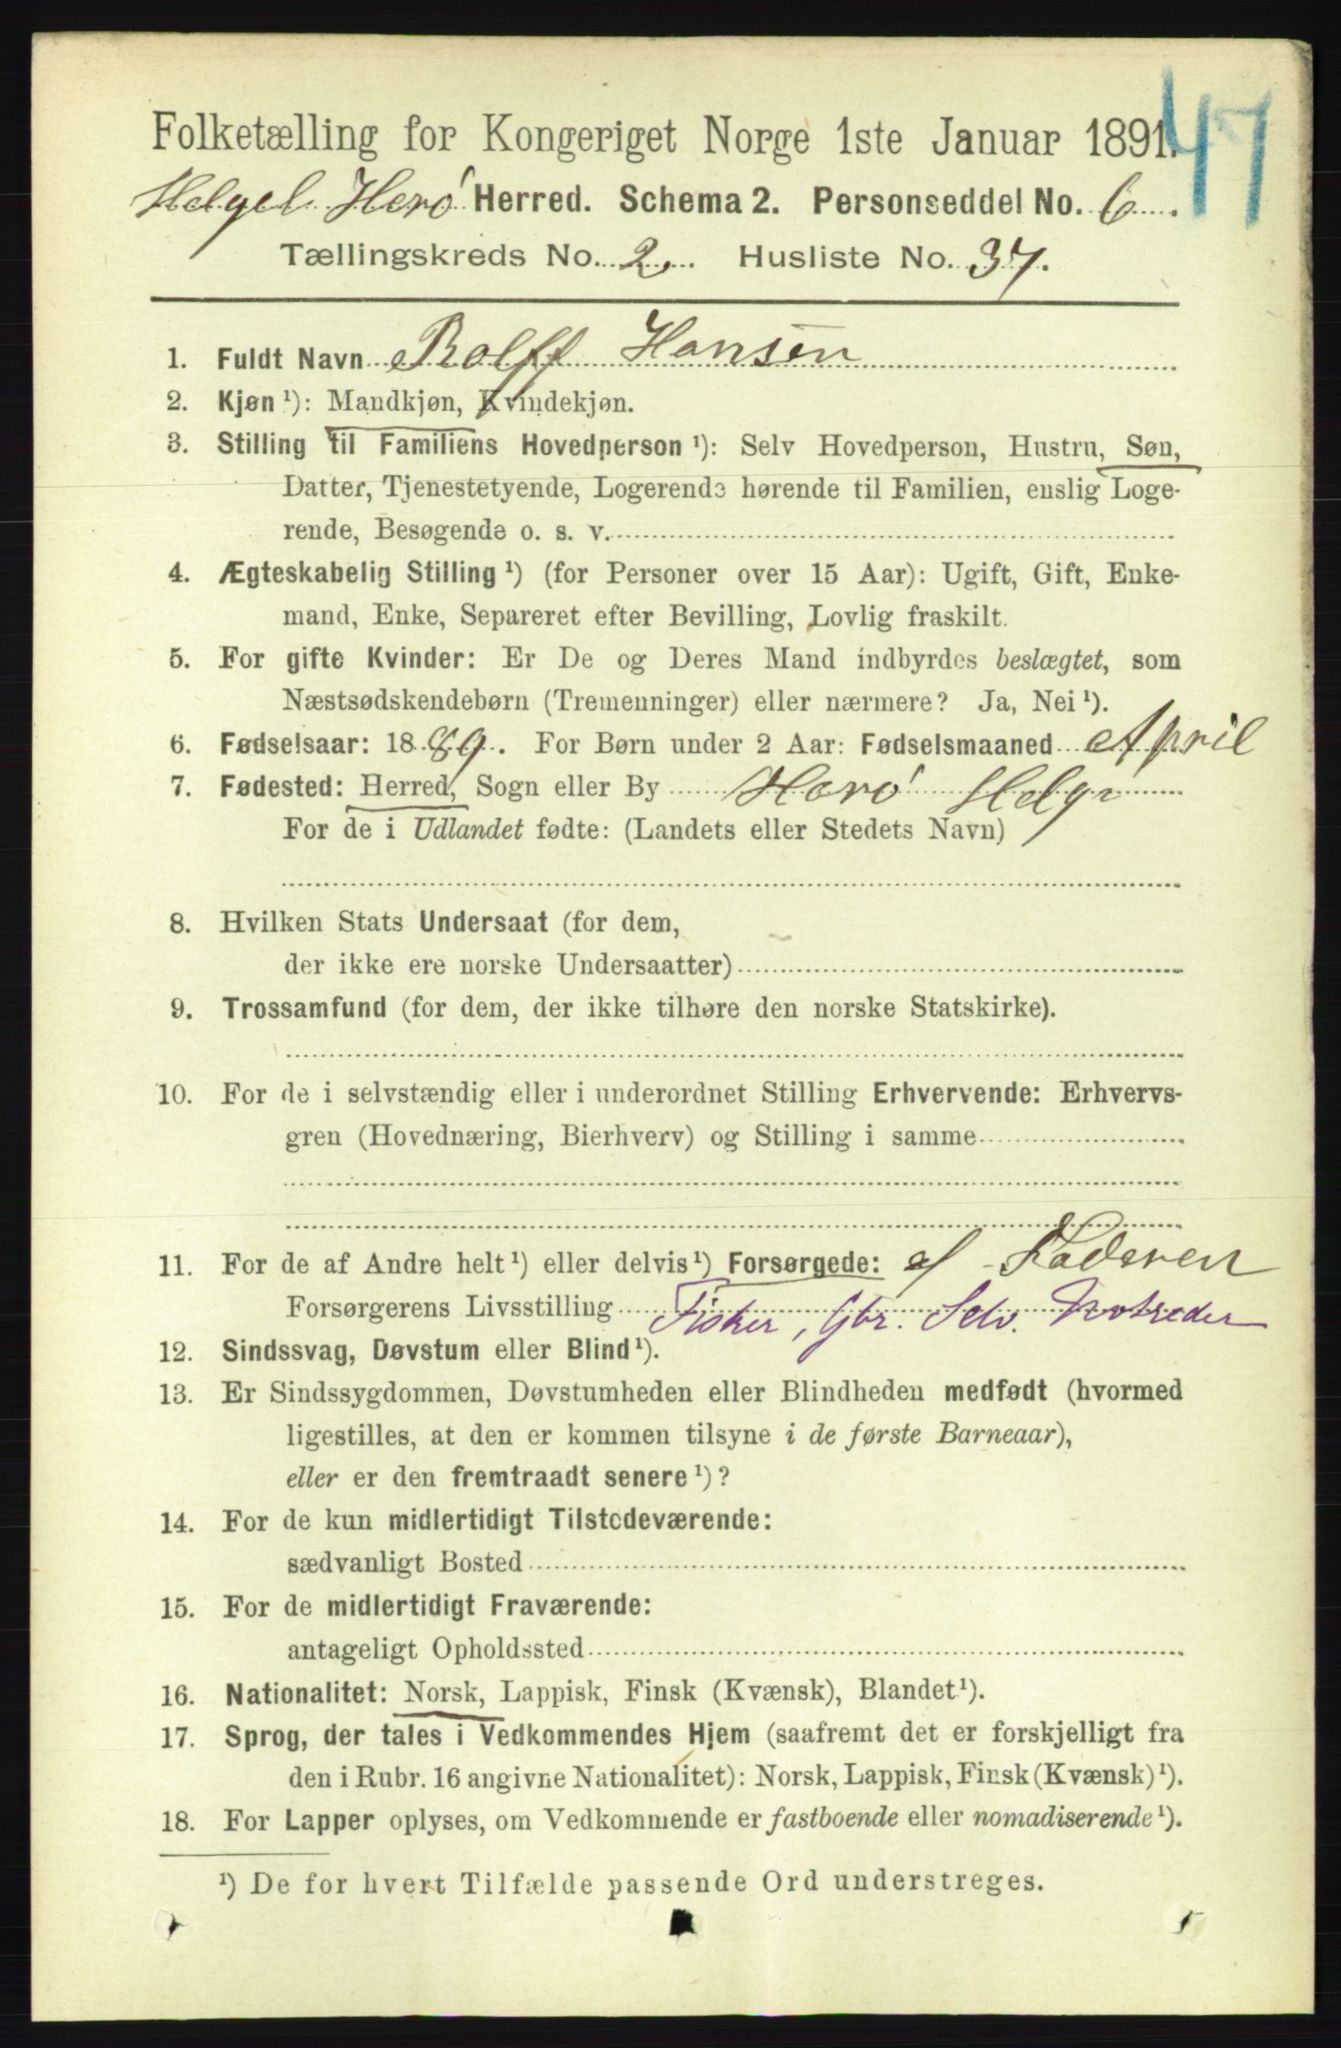 47
Folketælling for Kongeriget Norge 1ste Januar 1891.
Helgel. Herø Herred. Schema 2. Personseddel No. 6.
Tællingskreds No. 2. Husliste No. 37.
1. Fuldt Navn Rolff Hansen
2. Kjøn ¹): Mandkjøn, Kvindekjøn.
3. Stilling til Familiens Hovedperson ¹): Selv Hovedperson, Hustru, Søn,
Datter, Tjenestetyende, Logerende hørende til Familien, enslig Loge-
rende, Besøgende o. s. v.
4. Ægteskabelig Stilling ¹) (for Personer over 15 Aar): Ugift, Gift, Enke-
mand, Enke, Separeret efter Bevilling, Lovlig fraskilt.
5. For gifte Kvinder: Er De og Deres Mand indbyrdes beslægtet, som
Næstsødskendebørn (Tremenninger) eller nærmere? Ja, Nei ¹).
6. Fødselsaar: 1889. For Børn under 2 Aar: Fødselsmaaned April
7. Fødested: Herred, Sogn eller By Herø Helg
For de i Udlandet fødte: (Landets eller Stedets Navn)
8. Hvilken Stats Undersaat (for dem,
der ikke ere norske Undersaatter)
9. Trossamfund (for dem, der ikke tilhøre den norske Statskirke).
10. For de i selvstændig eller i underordnet Stilling Erhvervende: Erhvervs-
gren (Hovednæring, Bierhverv) og Stilling i samme
11. For de af Andre helt ¹) eller delvis ¹) Forsørgede: af Faderen
Forsørgerens Livsstilling Fisker, Gbr. Selv. Notreder
12. Sindssvag, Døvstum eller Blind ¹).
13. Er Sindssygdommen, Døvstumheden eller Blindheden medfødt (hvormed
ligestilles, at den er kommen tilsyne i de første Barneaar),
eller er den fremtraadt senere ¹)?
14. For de kun midlertidigt Tilstedeværende:
sædvanligt Bosted
15. For de midlertidigt Fraværende:
antageligt Opholdssted
16. Nationalitet: Norsk, Lappisk, Finsk (Kvænsk), Blandet ¹).
17. Sprog, der tales i Vedkommendes Hjem (saafremt det er forskjelligt fra
den i Rubr. 16 angivne Nationalitet): Norsk, Lappisk, Finsk (Kvænsk) ¹).
18. For Lapper oplyses, om Vedkommende er fastboende eller nomadiserende ¹).
¹) De for hvert Tilfælde passende Ord understreges.